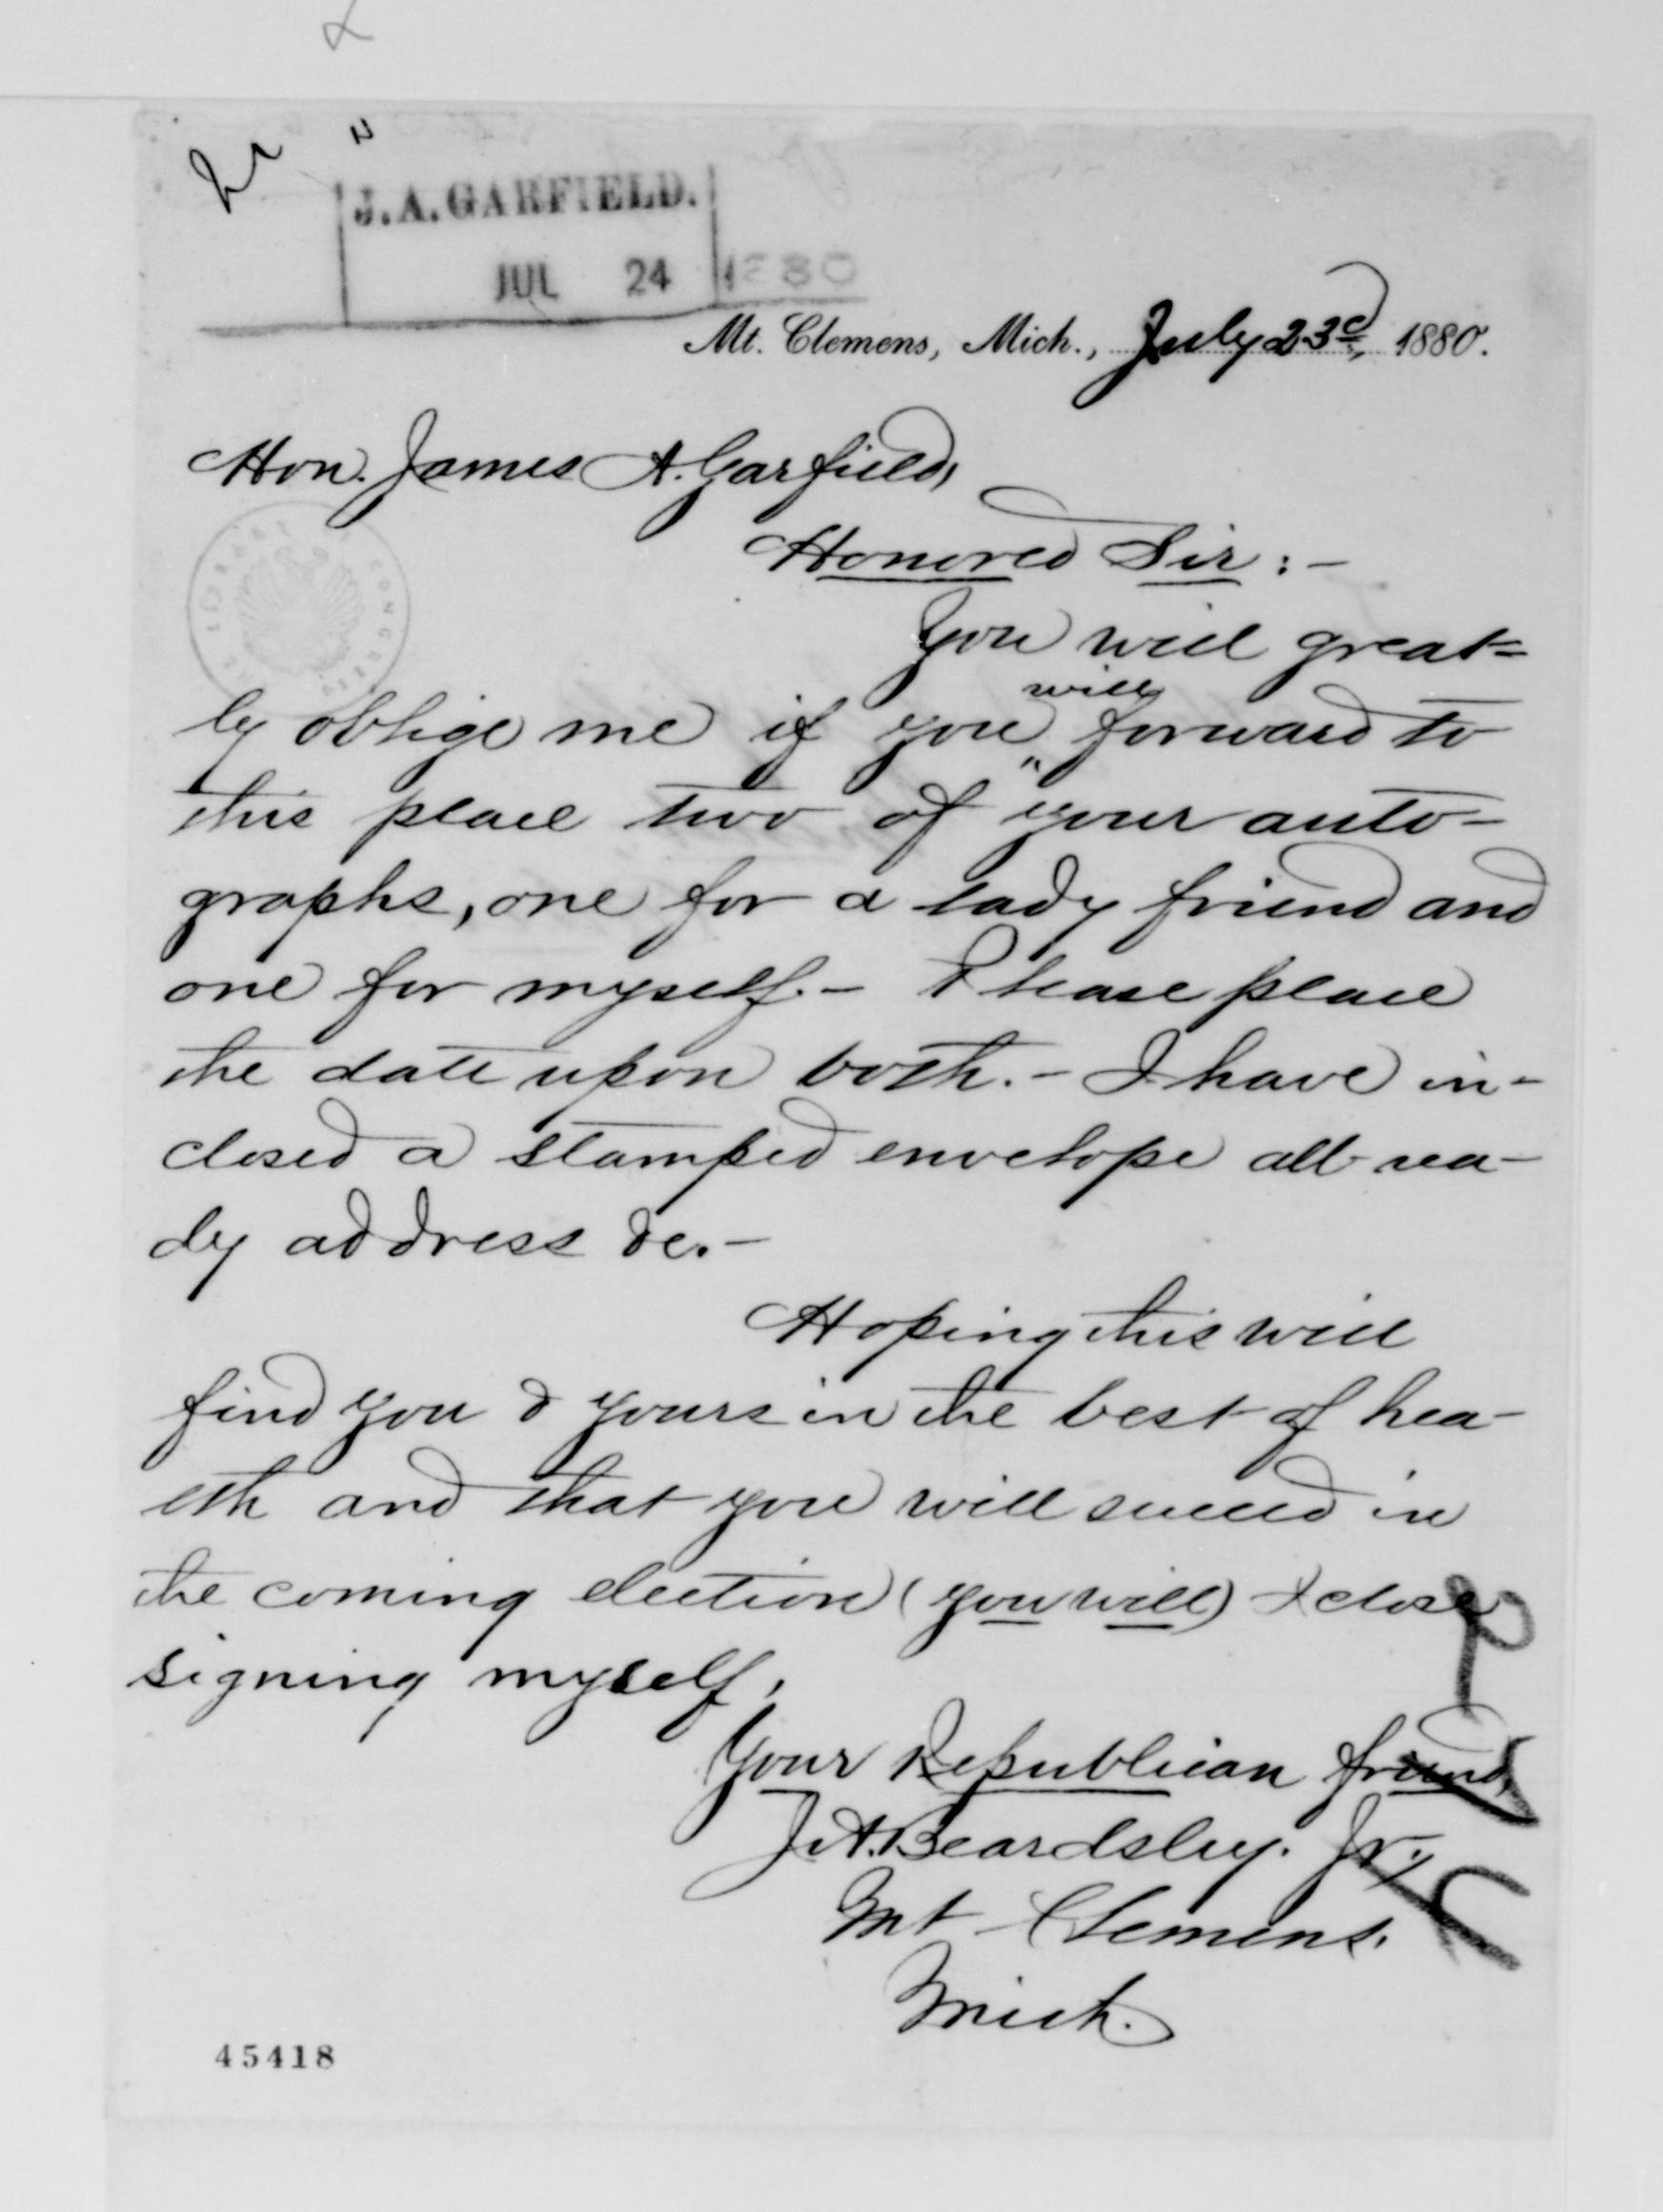 J.A. GARFIELD.
JUL 24 1880
Mt. Clemens, Mich., July 23d, 1880.
Hon. James A. Garfield,
Honored Sir:-
You will great=
will
ly oblige me if you forward to
this place two of your auto-
graphs, one for a lady friend and
one for myself.- Please place
the date upon both.- I have in-
closed a stamped envelope all rea-
dy address &c.-
Hoping this will
find you & yours in the best of hea-
lth and that you will succeed in
the coming election (you will) I close
signing myself,
Your Republican friend,
J.A. Beardsley. Jr.,
Mt Clemens.
Mich.
45418